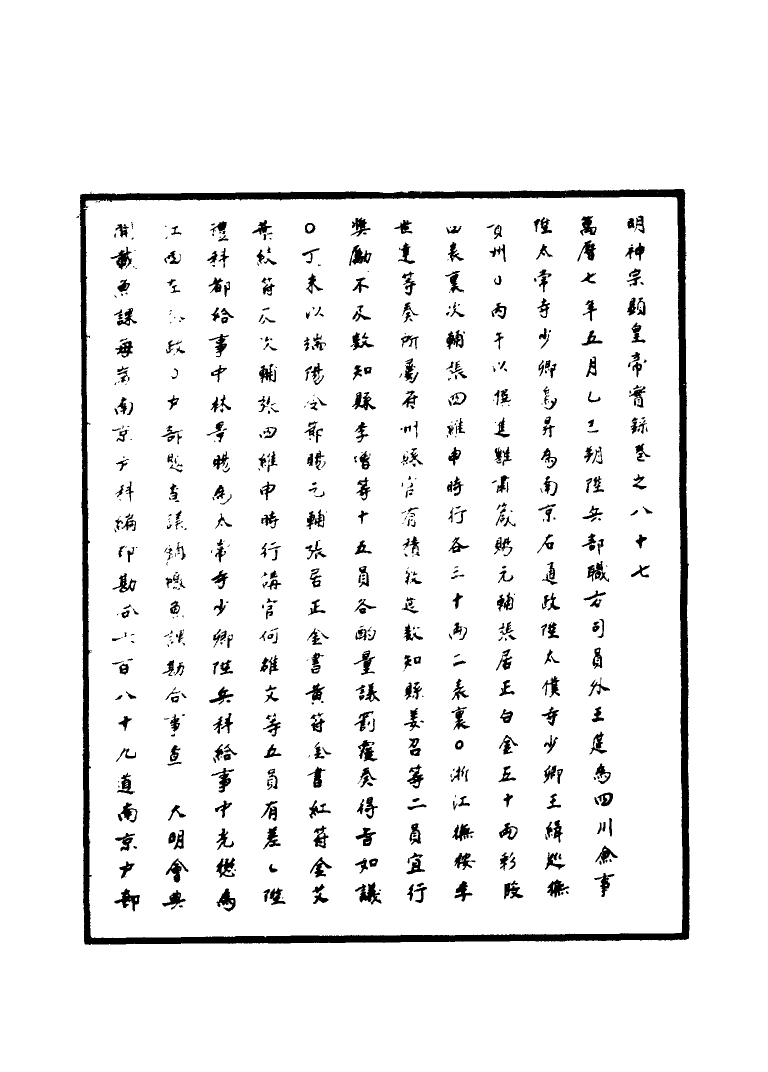 明神宗顯皇帝實錄卷之八十七
萬曆七年五月乙巳朔陞兵部職方司員外王廷為四川僉事
陞太常寺少卿烏昇為南京右通政陞太僕寺少卿王緝巡撫
貴州○丙午以撰進肅箴賜元輔張居正白金五十兩彩段
四表裏次輔張四維申時行各三十兩二表裏○浙江撫按李
世達等奏所屬府州縣官有積穀及數知縣姜召等二員宜行
獎勵不及數知縣李等十五員各酌量議罰覆奏得旨如議
○丁未以端陽令節賜元輔張居正金書黃符金書紅符金艾
葉絞符及次輔張四維申時行講官何雒文等五員有差○陞
禮科都給事中林景暘為太常寺少卿陞兵科給事中光懋為
江西左政○戶部題查議魚課勘合事查 大明會典
開載魚課每歲南京戶科編印勘合六百八十九道南京戶部